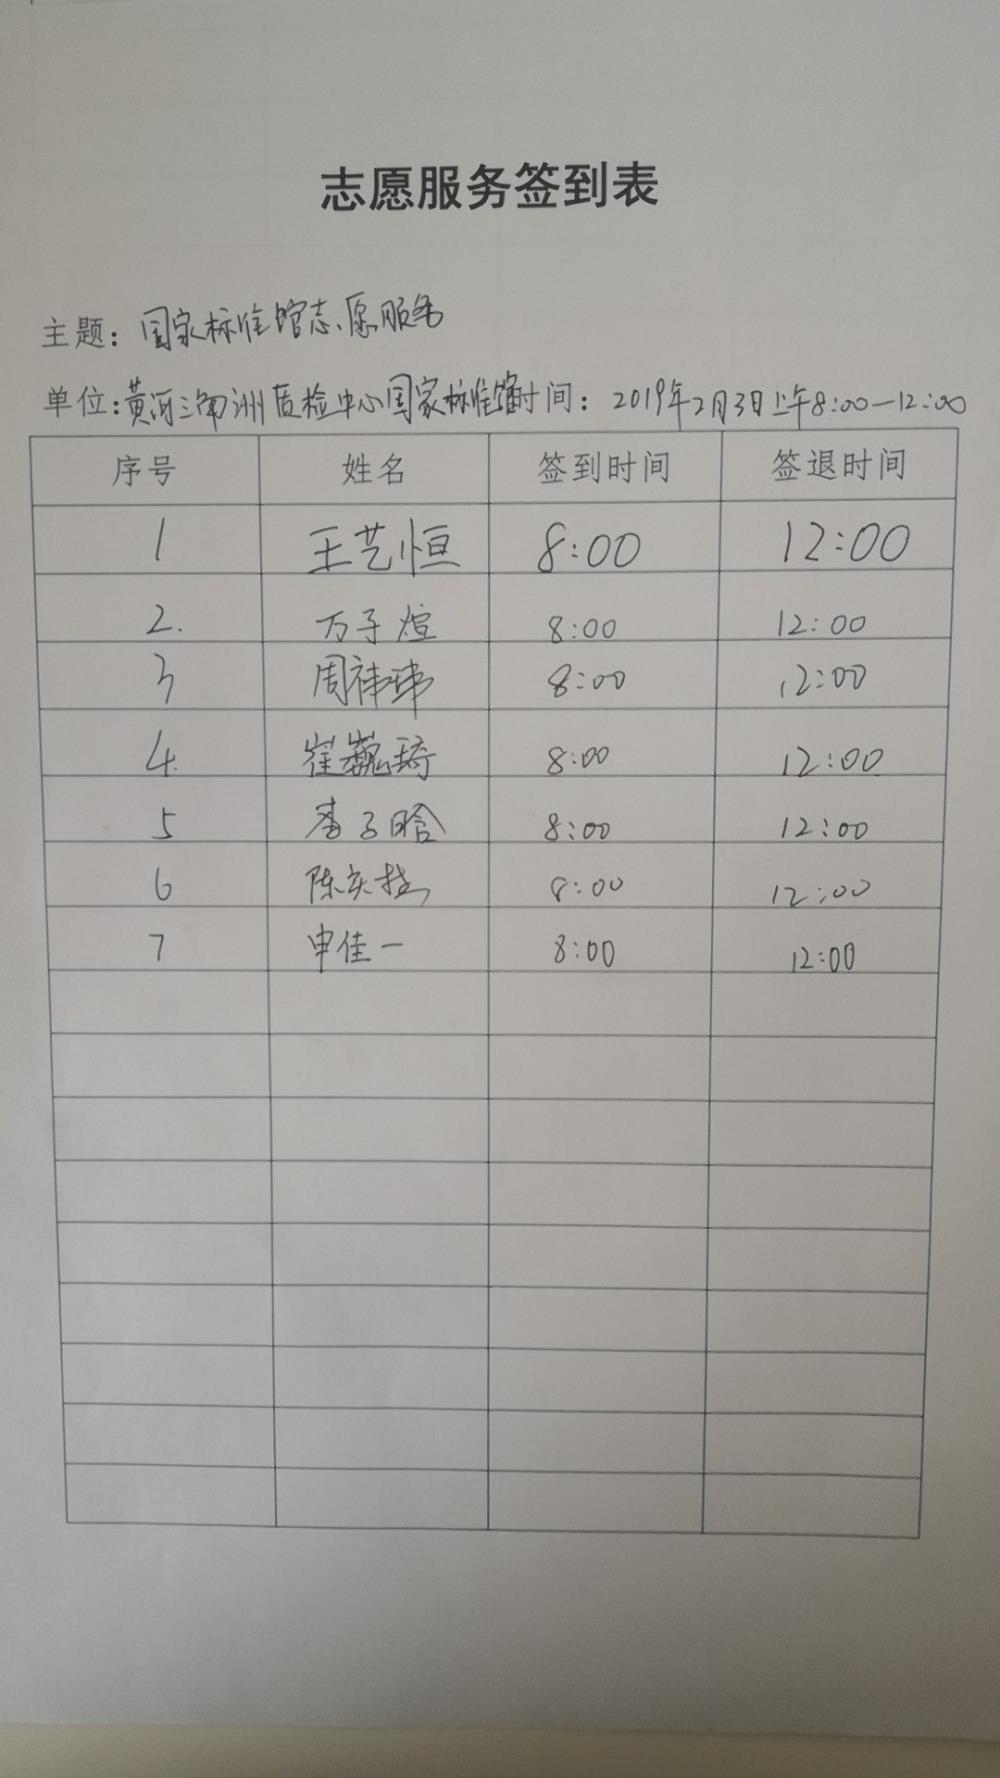 志愿服务签到表
主题：国家标准馆志愿服务
单位：黄河三角洲质检中心国家标准馆 时间：2019年2月3日上午8:00—12:00
序号 姓名 签到时间 签退时间
1 王艺恒 8:00 12:00
2. 万子煊 8:00 12:00
3 周祎玮 8:00 12:00
4. 崔巍琦 8:00 12:00
5 李子晗 8:00 12:00
6 陈奕 8:00 12:00
7 申佳一 8:00 12:00